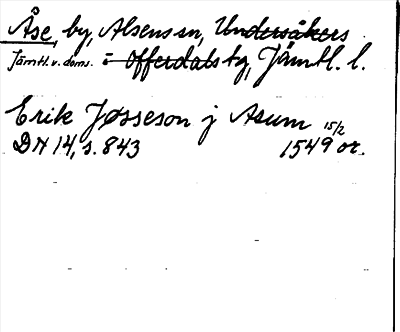 Åse, by, Alsens sn, Undersåkers
Jämtl. v. doms. i Offerdals tg, Jämtl. l.
Erik Jösseson j Asum 15/2
DN 14, s. 843 1549 or.